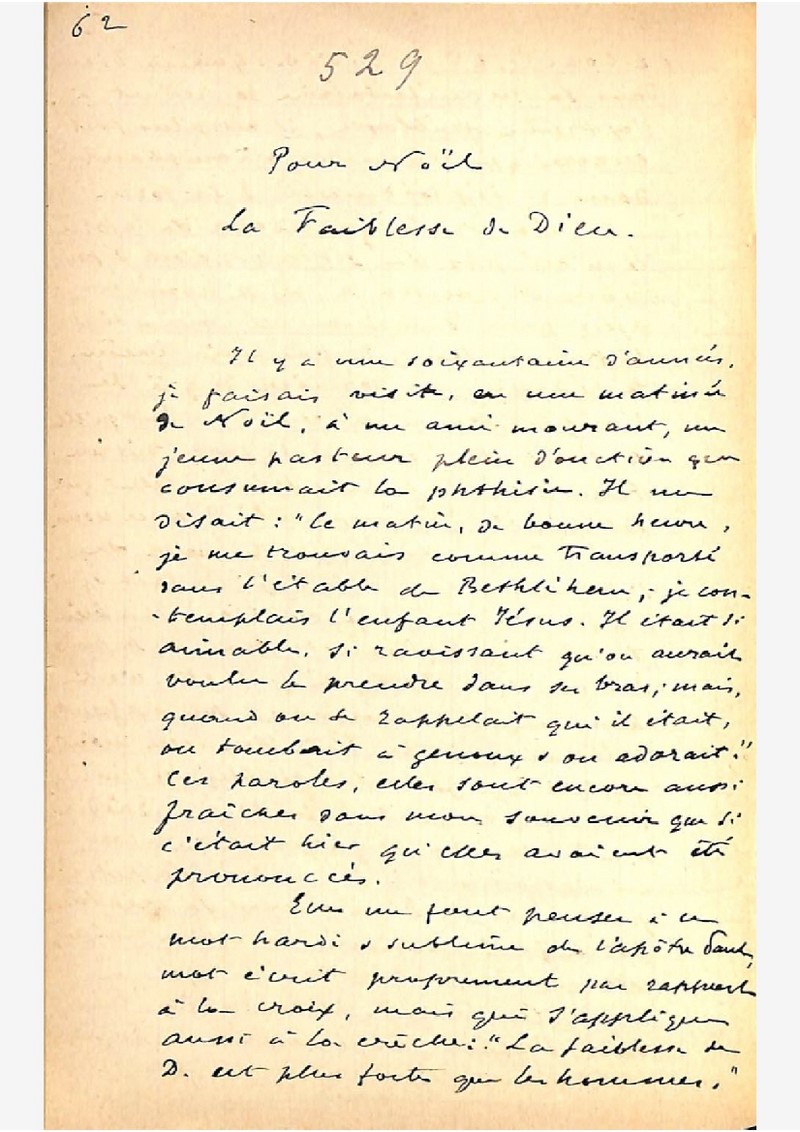 62
529
Pour Noël
La Faiblesse de Dieu.
Il y a une soixantaine d'années,
je faisais visite, en une matinée
de Noël, à un ami mourant, un
jeune pasteur plein d'onction que
consumait la phthisie. Il me
disait : "Ce matin, de bonne heure,
je me trouvais comme transporté
dans l'étable de Bethléhem ; je con-
-templais l'enfant Jésus. Il était si
aimable, si ravissant qu'on aurait
voulu le prendre dans ses bras ; mais,
quand on se rappelait qui il était,
on tombait à genoux & on adorait."
Ces paroles, elles sont encore aussi
fraîches dans mon souvenir que si
c'était hier qu'elles avaient été
prononcées.
Elles me font penser à ce
mot hardi & sublime de l'apôtre Paul,
mot écrit proprement par rapport
à la croix, mais qui s'applique
aussi à la crèche : "La faiblesse de
D. est plus forte que les hommes."